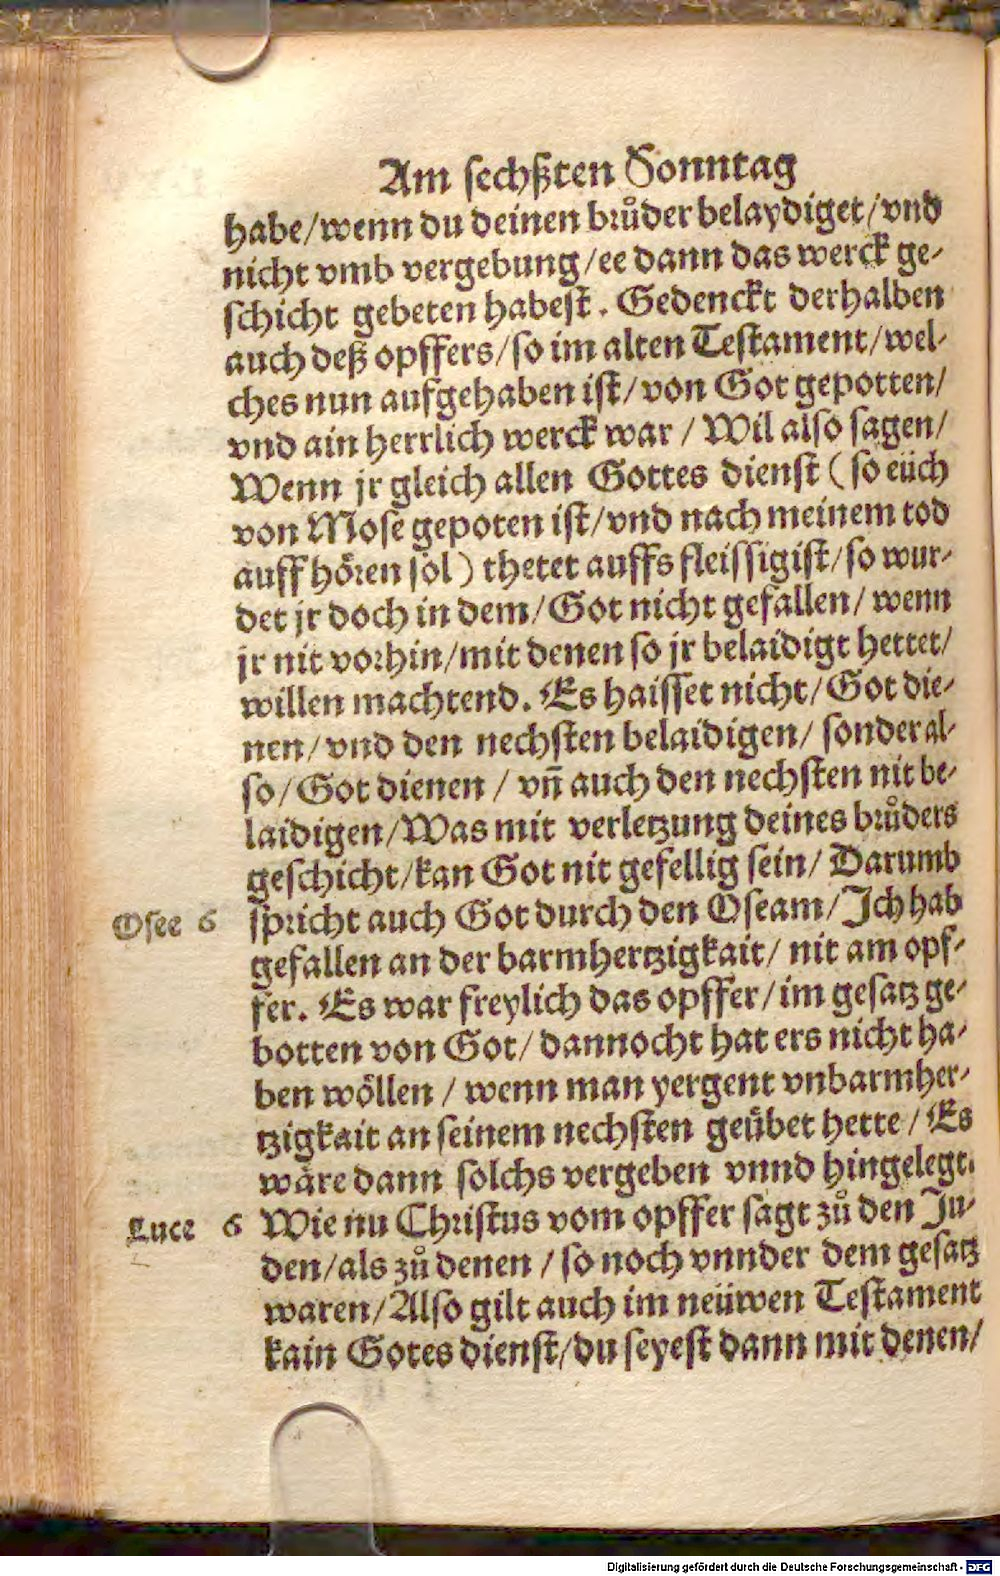 Am sechßten Sonntag
habe/wenn du deinen brůder belaydiget/vnd
nicht vmb vergebung/ee dann das werck ge-
schicht gebeten habest. Gedenckt derhalben
auch deß opffers/so im alten Testament/wel-
ches nun aufgehaben ist/von Got gepotten/
vnd ain herrlich werck war/Wil also sagen/
Wenn jr gleich allen Gottes dienst (so eüch
von Mose gepoten ist/vnd nach meinem tod
auff hören sol) thetet auffs fleissigist/so wur-
det jr doch in dem/Got nicht gefallen/wenn
jr nit vorhin/mit denen so jr belaidigt hettet/
willen machtend. Es haisset nicht/Got die-
nen/vnd den nechsten belaidigen/sonder al-
so/Got dienen/vñ auch den nechsten nit be-
laidigen/Was mit verletzung deines brůders
geschicht/kan Got nit gefellig sein/Darumb
Osee 6 spricht auch Got durch den Oseam/Ich hab
gefallen an der barmhertzigkait/nit am opf-
fer. Es war freylich das opffer/im gesatz ge-
botten von Got/dannocht hat ers nicht ha-
ben wöllen/wenn man yergent vnbarmher-
tzigkait an seinem nechsten geübet hette/Es
wäre dann solchs vergeben vnnd hingelegt.
Luce 6 Wie nu Christus vom opffer sagt zů den Ju-
den/als zů denen/so noch vnnder dem gesatz
waren/Also gilt auch im neüwen Testament
kain Gotes dienst/du seyest dann mit denen/
Digitalisierung gefördert durch die Deutsche Forschungsgemeinschaft - DFG